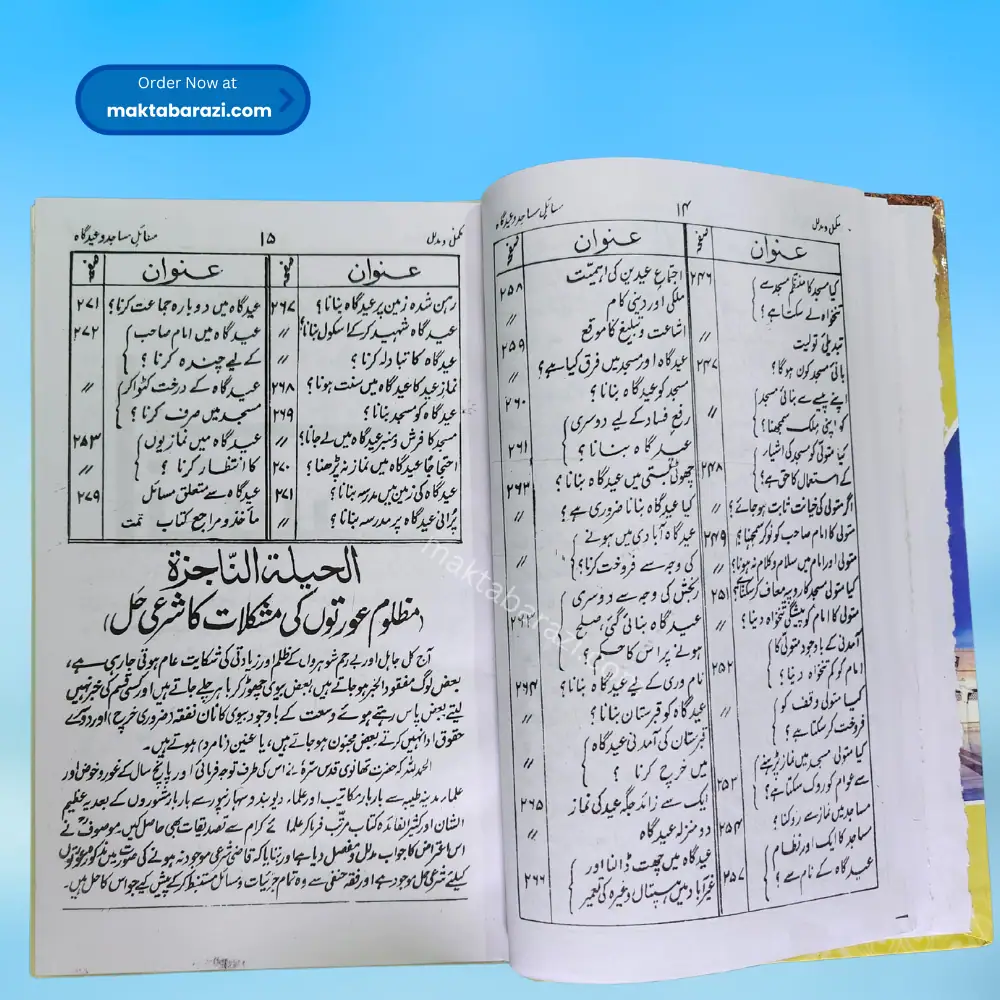 Order Now at
maktabarazi.com
مکمل و مدلل ۱۴ مسائل مساجد و عیدگاہ
عنوان صفحہ
کیا مسجد کا منتظم مسجد سے
تنخواہ لے سکتا ہے؟ ۲۴۶
تبدیلیٔ تولیت 〃
بانیٔ مسجد کون ہوگا؟ ۲۴۷
اپنے پیسے سے بنائی مسجد
کو اپنی ملک سمجھنا؟ 〃
کیا متولی کو مسجد کی اشیار
کے استعمال کا حق ہے؟ ۲۴۸
اگر متولی کی خیانت ثابت ہو جائے؟ 〃
متولی کا امام صاحب کو نوکر سمجھنا؟ ۲۴۹
متولی اور امام میں سلام و کلام نہ ہونا؟ 〃
کیا متولی مسجد کا روپیہ معاف کر سکتا ہے؟ ۲۵۱
متولی کا امام کو پیشگی تنخواہ دینا؟ 〃
آمدنی کے باوجود متولی کا
امام کو کم تنخواہ دینا؟ ۲۵۲
کیا متولی وقف کو
فروخت کر سکتا ہے؟ 〃
کیا متولی مسجد میں نماز پڑھنے
سے عوام کو روک سکتا ہے؟ ۲۵۳
مساجد میں نماز سے روکنا؟ ۲۵۴
مساجد کا ایک اور نظام
عیدگاہ کے نام سے؟ ۲۵۷
عنوان صفحہ
اجتماع عیدین کی اہمیّت ۲۵۸
ملکی اور دینی کام 〃
اشاعت و تبلیغ کا موقع ۲۵۹
عیدگاہ اور مسجد میں فرق کیا ہے؟ 〃
مسجد کو عیدگاہ بنانا؟ ۲۶۰
رفع فساد کے لیے دوسری
عیدگاہ بنانا؟ ۲۶۱
چھوٹی بستی میں عیدگاہ بنانا؟ ۲۶۳
کیا عیدگاہ بنانا ضروری ہے؟ 〃
عیدگاہ آبادی میں ہونے
کی وجہ سے فروخت کرنا؟ 〃
رنجش کی وجہ سے دوسری
عیدگاہ بنائی گئی، صلح
ہونے پر اس کا حکم؟
نام وری کے لیے عیدگاہ بنانا؟ ۲۶۴
عیدگاہ کو قبرستان بنانا؟ 〃
قبرستان کی آمدنی عیدگاہ
میں خرچ کرنا؟ 〃
ایک سے زائد جگہ عید کی نماز ۲۶۵
دو منزلہ عیدگاہ 〃
عیدگاہ میں چھت ڈالنا اور
غیر آباد میں ہسپتال وغیرہ کی تعمیر ۲۶۶
مکمل و مدلل ۱۵ مسائل مساجد و عیدگاہ
عنوان صفحہ
رہن شدہ زمین پر عیدگاہ بنانا؟ ۲۶۷
عیدگاہ شہید کر کے اسکول بنانا؟ 〃
عیدگاہ کا تبادلہ کرنا؟ 〃
نماز عید کا عیدگاہ میں سنت ہونا؟ ۲۶۸
عیدگاہ کو مسجد بنانا؟ ۲۶۹
مسجد کا فرش و منبر عیدگاہ میں لے جانا؟ 〃
احتجاجًا عیدگاہ میں نماز نہ پڑھنا؟ ۲۷۰
عیدگاہ کی زمین میں مدرسہ بنانا؟ ۲۷۱
پُرانی عیدگاہ پر مدرسہ بنانا؟ 〃
عنوان صفحہ
عیدگاہ میں دوبارہ جماعت کرنا؟ ۲۷۱
عیدگاہ میں امام صاحب ۲۷۲
کے لیے چندہ کرنا؟
عیدگاہ کے درخت کٹوا کر 〃
مسجد میں صرف کرنا؟
عیدگاہ میں نمازیوں ۲۵۳
کا انتظار کرنا؟ 〃
عیدگاہ سے متعلق مسائل ۲۷۹
مآخذ و مراجع کتاب تمت
الحیلۃ النّاجزۃ
(مظلوم عورتوں کی مشکلات کا شرعی حل)
آج کل جاہل اور بے رحم شوہروں کے ظلم اور زیادتی کی شکایت عام ہوتی جا رہی ہے،
بعض لوگ مفقود الخبر ہو جاتے ہیں، بعض بیوی چھوڑ کر باہر چلے جاتے ہیں اور کسی قسم کی خبر نہیں
لیتے بعض پاس رہتے ہوئے وسعت کے باوجود بیوی کا نان نفقہ (ضروری خرچ) اور دوسرے
حقوق ادا نہیں کرتے بعض مجنون ہو جاتے ہیں، یا عنین (نامرد) ہوتے ہیں۔
الحمد للہ کہ حضرت تھانوی قدس سرہ نے اس کی طرف توجہ فرمائی اور پانچ سال کے غور و خوض اور
علماء مدینہ طیبہ سے بار بار مکاتیب اور علماء دیوبند و سہارنپور سے بار بار مشوروں کے بعد یہ عظیم
الشان اور کثیر الفائدہ کتاب مرتّب فرما کر علمائے کرام سے تصدیقات بھی حاصل کیں۔ موصوف نے
اس اعتراض کا جواب مدلل و مفصل دیا ہے اور بتایا کہ قاضی شرعی موجود نہ ہونے کی صورت میں مذکورہ عورتوں
کیلئے شرعی حل موجود ہے اور فقہ حنفی سے وہ تمام جزئیات و مسائل مستنبط کر کے پیش کیے جو اس کا حل ہیں۔
maktabarazi.com